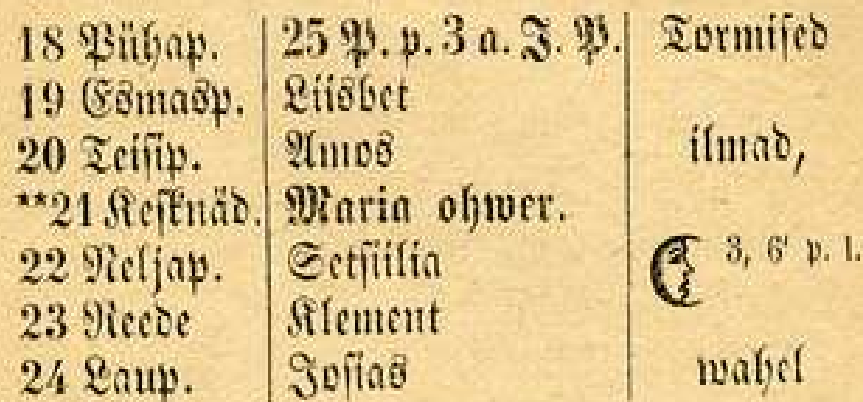 18 Pühap. 25 P. p. 3 a. J. P. Tormised
19 Esmasp. Liisbet
20 Teisip. Amos ilmad,
**21 Kesknäd. Maria ohwer.
22 Neljap. Setsiilia 3, 6' p. l.
23 Reede Klement
24 Laup. Josias wahel